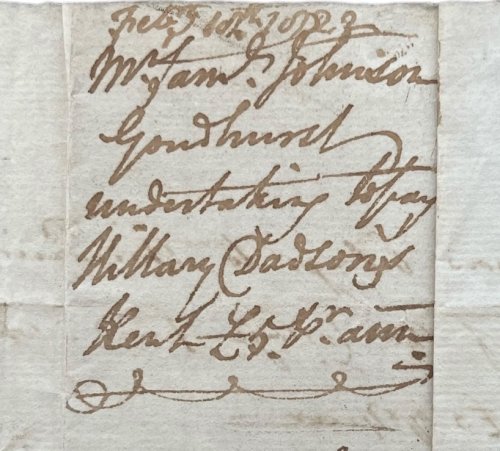 Feby 10th 1782
Mr. Jam.s Johnson
Goudhurst
undertaking to pay
Hillary Dadson's
Rent £5. Pr. ann